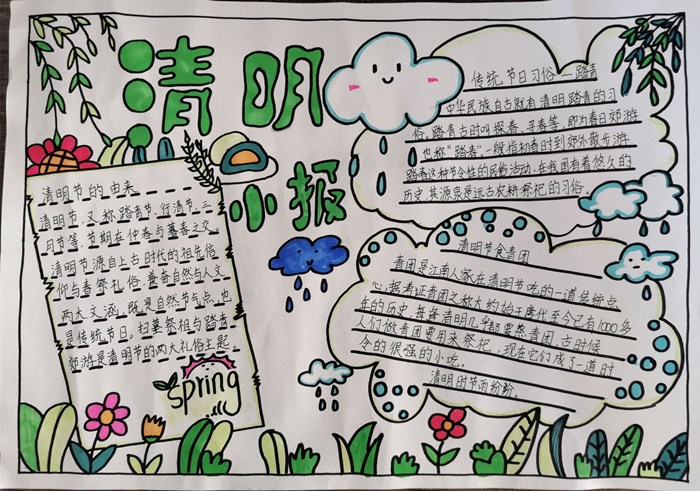 清明
小报
清明节的由来
清明节,又称踏青节、行清节、三
月节等,节期在仲春与暮春之交
清明节源自上古时代的祖先信
仰与春祭礼俗,兼奋自然与人文
两大文涵,既是自然节气点,也
是传统节日。扫墓祭祖与踏青
郊游是清明节的两大礼俗主题。
Spring
传统节日习俗一踏青
中华民族自古就有清明踏青的习
俗,踏青古时叫探春、寻春等,即为春日郊游
也称"踏春"一般指初春时到郊外散步游
踏春这种节令性的民俗活动,在我国有着悠久的
历史,其源泉是远古农耕祭祀的习俗。
清明节食青团
青团是江南人家在清明节吃的一道传统点
心,据考证青团之放大约始于唐代至今已有1000多
年的历史,每逢清明几乎都要蒸青团,古时候
人们做青团要用来祭祀,现在它们成了一道时
令的很强的小吃。
清明时节雨纷纷.